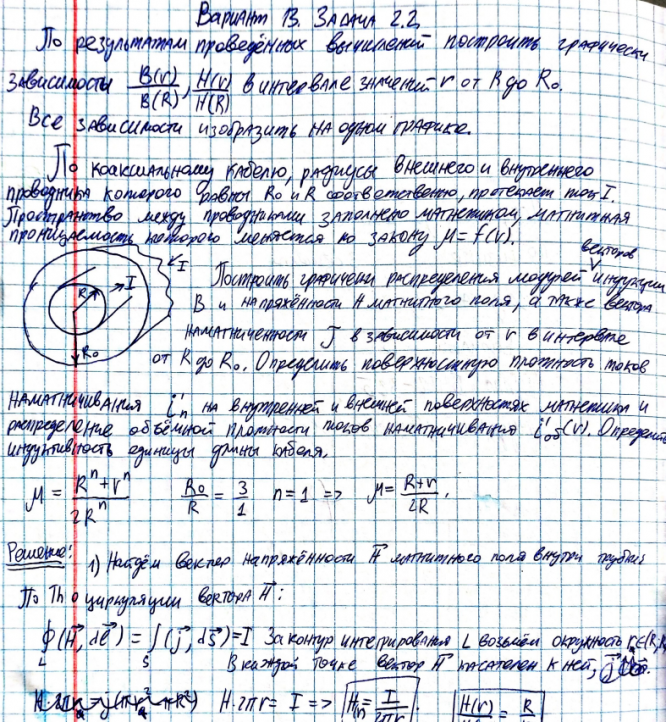 Вариант 13. Задача 2.2
По результатам проведённых вычислений построить графически
зависимости B(r)/B(R), H(r)/H(R) в интервале значений r от R до R₀.
Все зависимости изобразить на одном графике.
По коаксиальному кабелю, радиусы внешнего и внутреннего
проводника которого равны R₀ и R соответственно, протекает ток I.
Пространство между проводниками заполнено магнетиком, магнитная
проницаемость которого меняется по закону μ = f(r).
I
R
I
R₀
векторов
Построить графически распределения модулей индукции
B и напряжённости H магнитного поля, а также вектора
намагниченности J в зависимости от r в интервале
от R до R₀. Определить поверхностную плотность токов
намагничивания i'ₙ на внутренней и внешней поверхностях магнетика и
распределение объёмной плотности токов намагничивания i'об(r). Определить
индуктивность единицы длины кабеля.
μ = (Rⁿ + rⁿ)/(2Rⁿ) R₀/R = 3/1 n = 1 => μ = (R+r)/(2R).
Решение: 1) Найдём вектор напряжённости H⃗ магнитного поля внутри трубки
По Th о циркуляции вектора H⃗:
∮_L (H⃗, dl⃗) = ∫_S (j⃗, ds⃗) = I За контур интегрирования L возьмём окружность
В каждой точке вектор H⃗ касателен к ней,
H·2πr = I => H = I/(2πr). H(r)/H(R) = R/